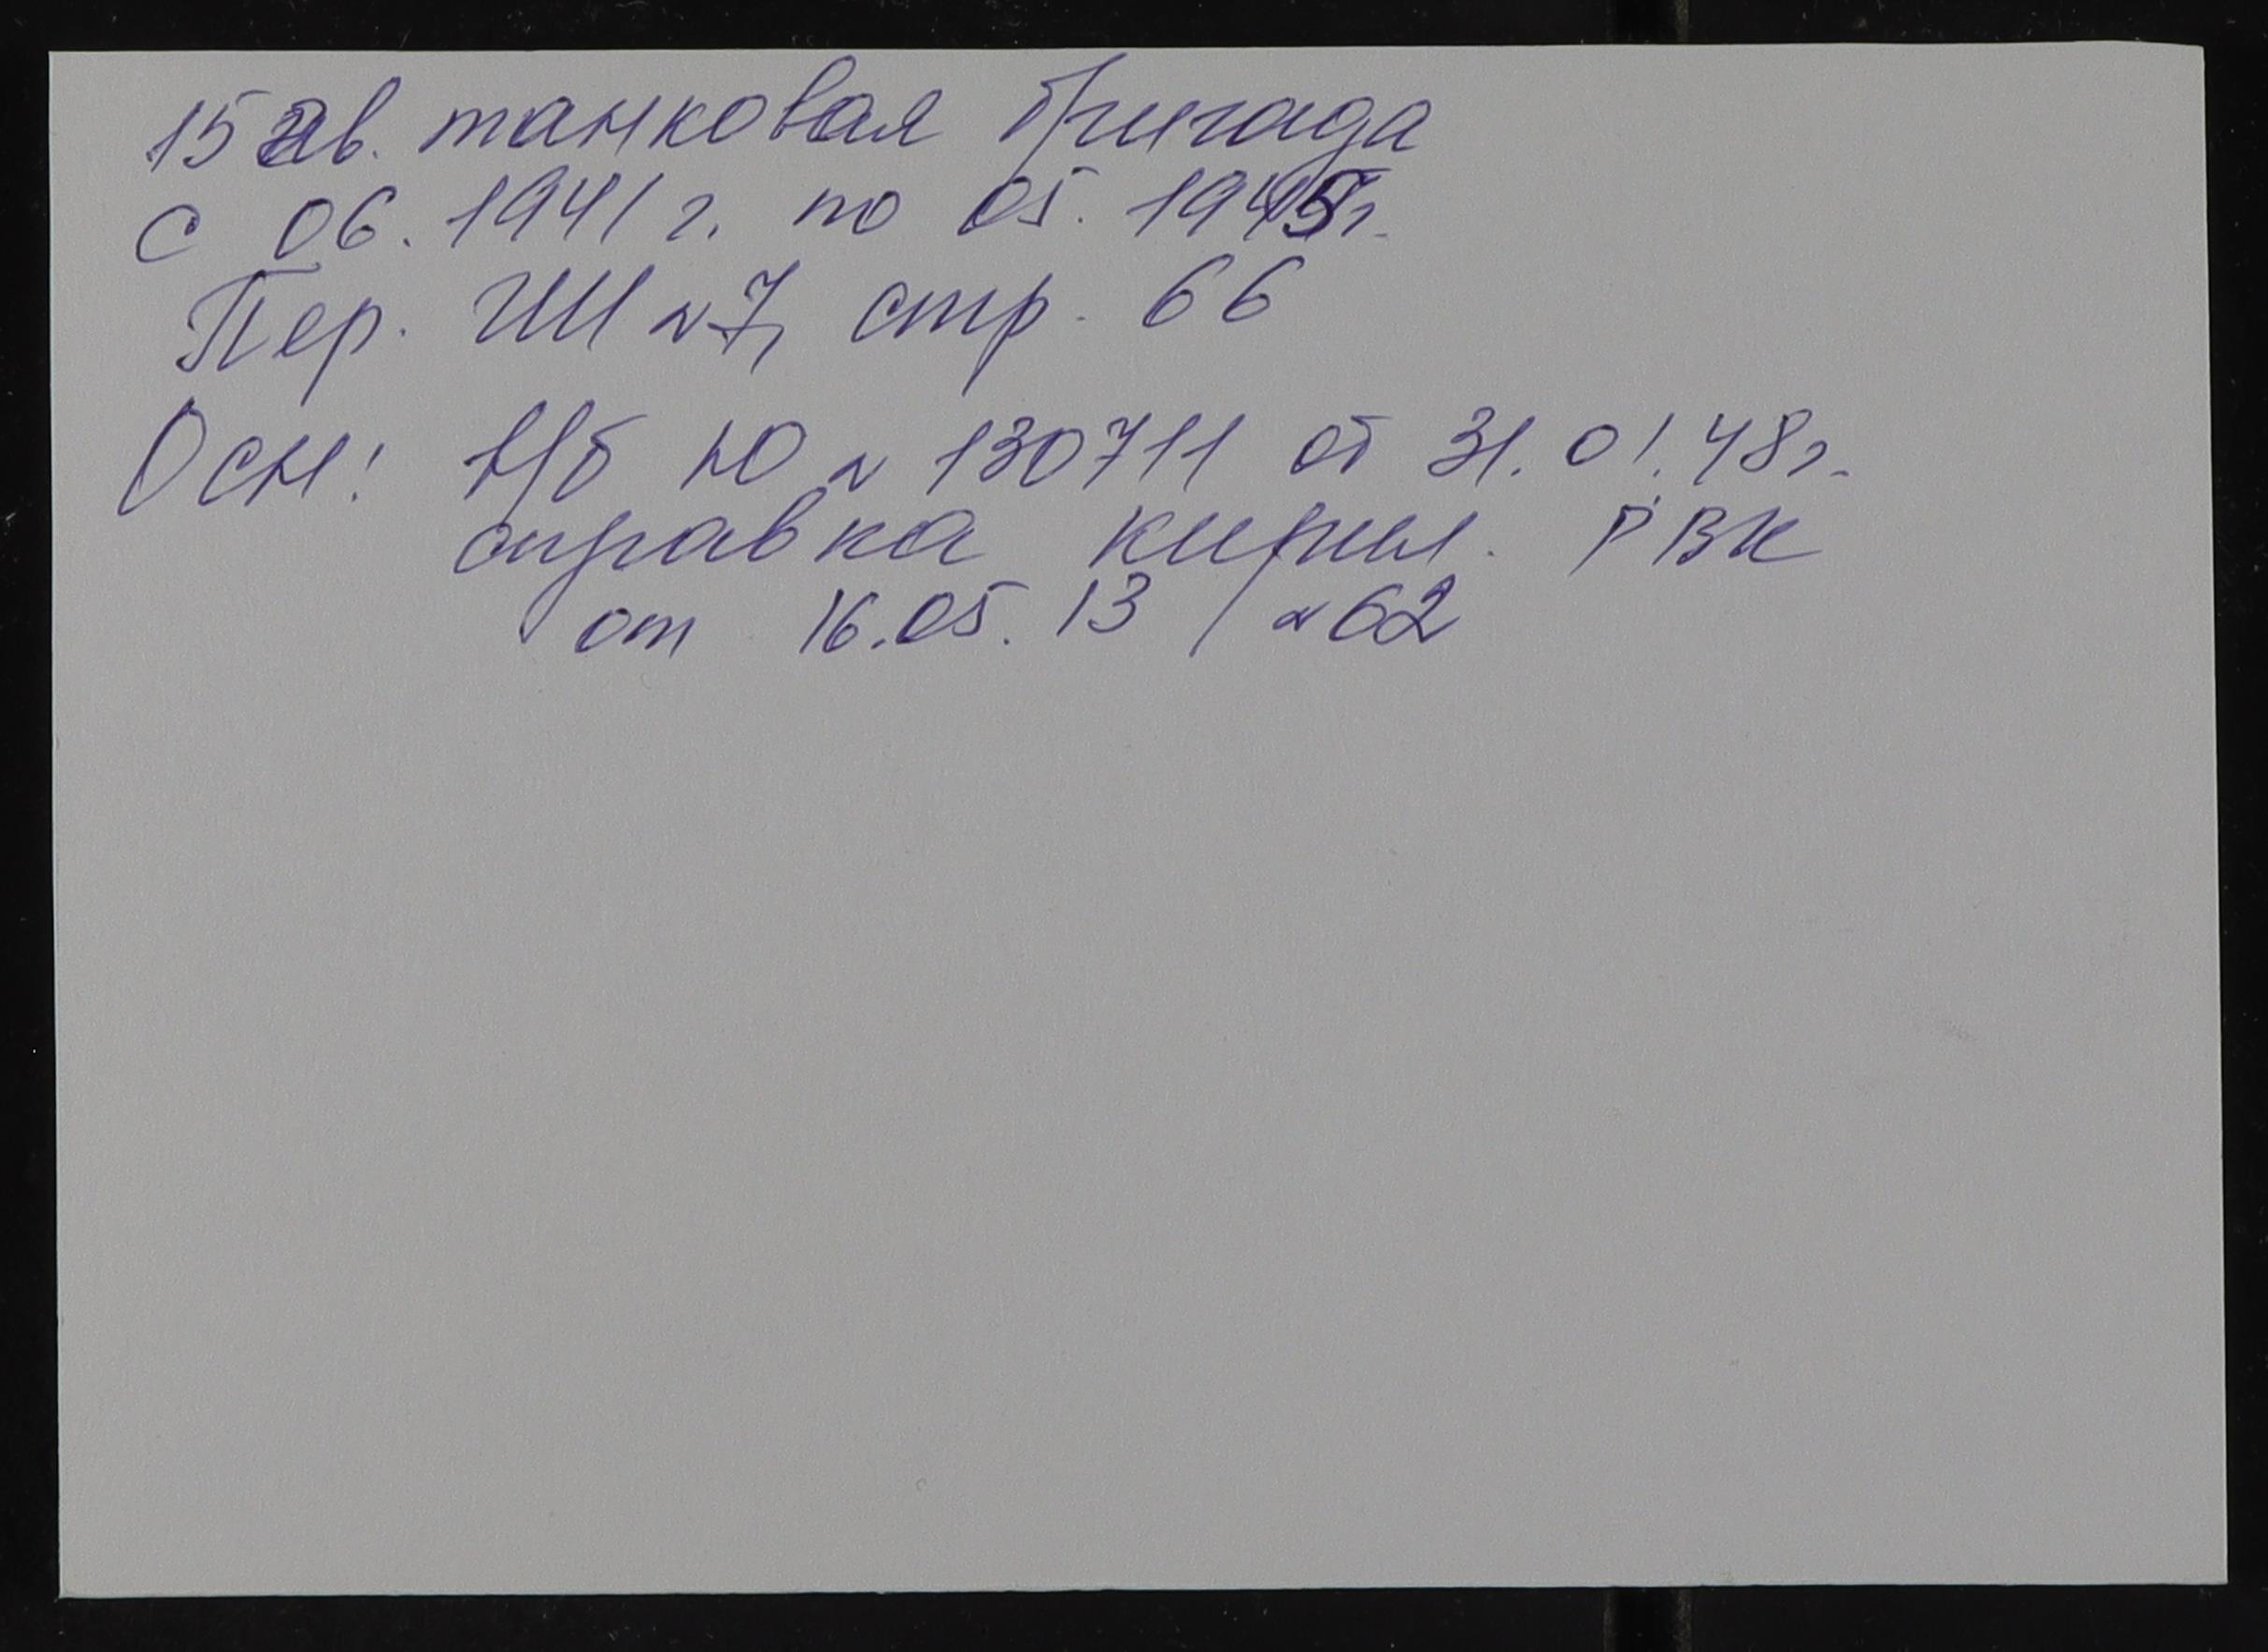 15 гв. танковая бригада
с 06. 1941 г. по 05. 1945 г.
Пер. ГШ №7, стр. 66
Осн: Ю № 130711 от 31.01.48г.
справка кирил. РВК
от 16.05.13 / №62